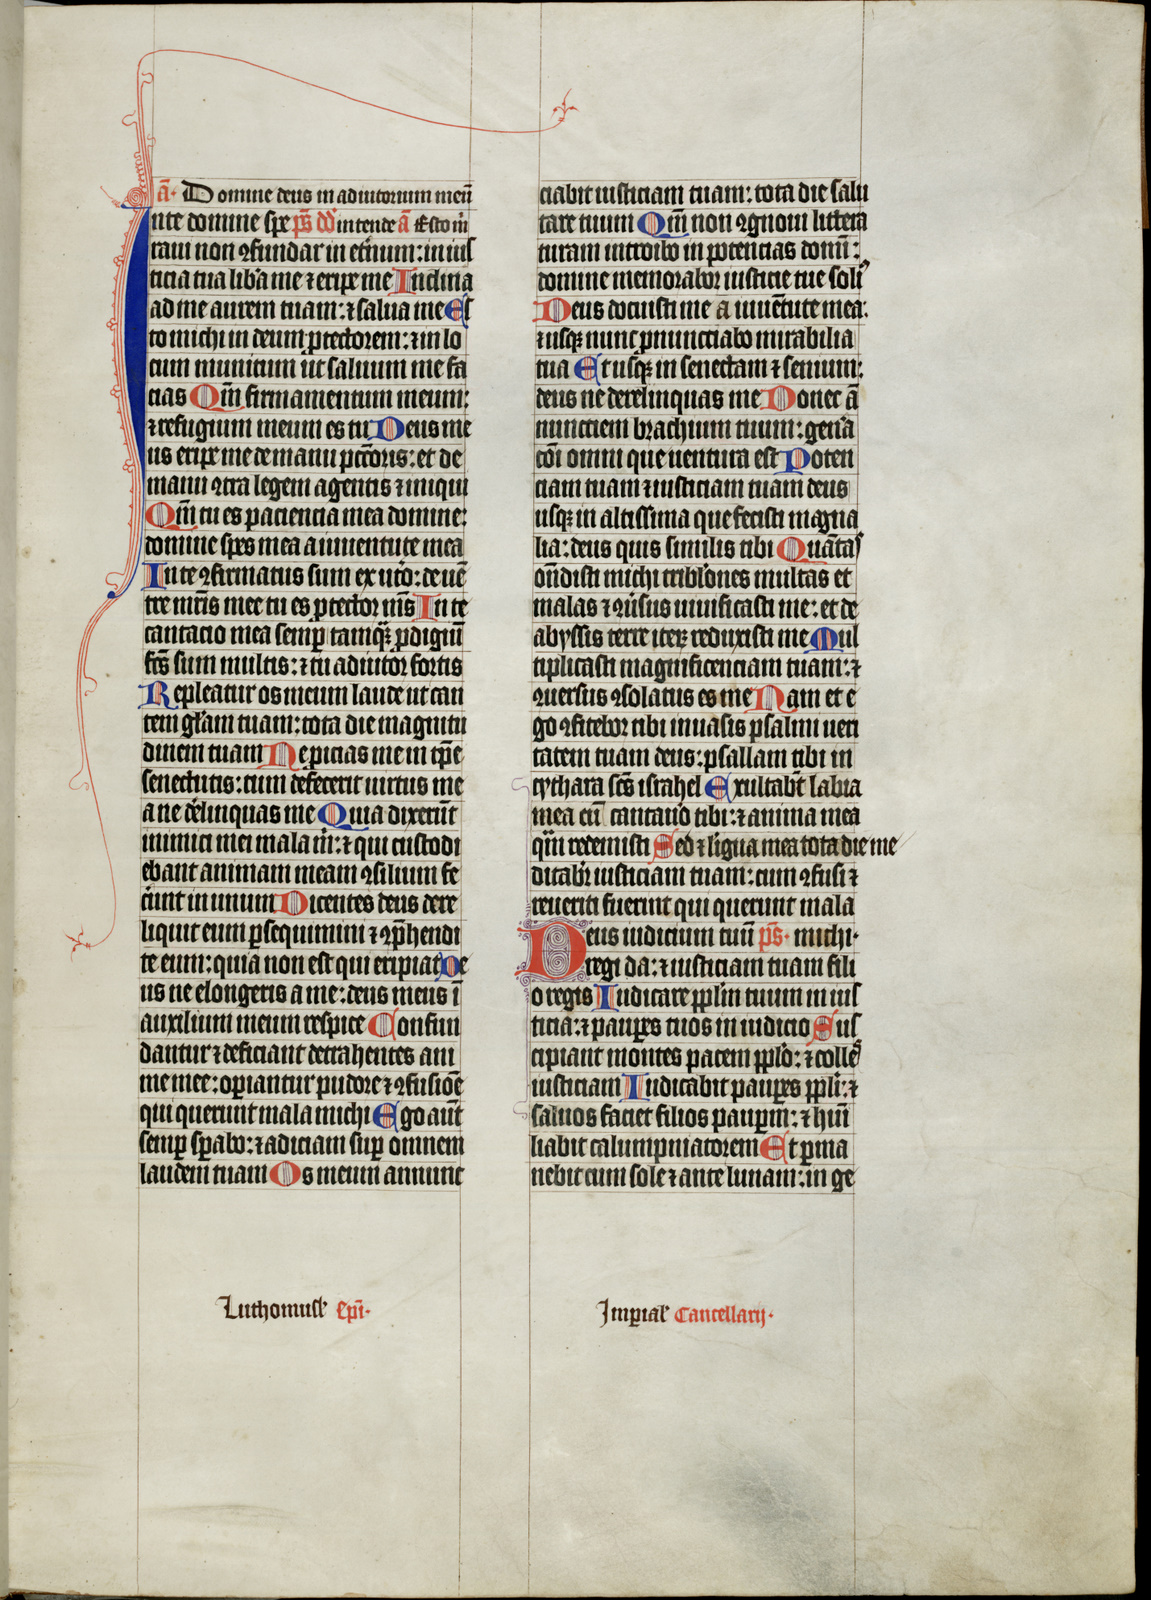 a̅· Domine deus in adiutorium meū
Inte domine spe p̅s dd intende a̅ Esto m̄
raui non ꝯfundar in et̄num: in ius
ticia tua liba me ⁊ eripe me Inclina
ad me aurem tuam: ⁊ salua me Es
to michi in deum ꝓtectorem: ⁊ in lo
cum munitum ut saluum me fa
cias Qm̄ firmamentum meum:
⁊ refugium meum es tu Deus me
us eripe me de manu pctōris: et de
manu ꝯtra legem agentis ⁊ iniqui
Qm̄ tu es paciencia mea domine:
domine spes mea a iuuentute mea
In te ꝯfirmatus sum ex uto: de uē
tre mr̄is mee tu es ꝓtector m̄s In te
cantacio mea semꝑ tamqꝫ ꝓdigiū
fc̄s sum multis: ⁊ tu adiutor fortis
Repleatur os meum laude ut can
tem gl̄am tuam: tota die magnitu
dinem tuam Ne ꝓicias me in tꝑe
senectutis: cum defecerit uirtus me
a ne d̄elinquas me Quia dixerūt
inimici mei mala m̄: ⁊ qui custodi
ebant animam meam ꝯsilium fe
c̄unt in unum Dicentes deus dere
liquit eum ꝑsequimini ⁊ ꝯp̄hendi
te eum: quia non est qui eripiat De
us ne elongeris a me: deus meus ī
auxilium meum respice Confun
dantur ⁊ deficiant detrahentes ani
me mee: oꝑiantur pudore ⁊ ꝯfusiōe
qui querunt mala michi Ego aūt
semꝑ sꝑabo: ⁊ adiciam suꝑ omnem
laudem tuam Os meum annunc
ciabit iusticiam tuam: tota die salu
tare tuum Qm̄ non ꝯgnoui littera
turam introibo in potencias domī:
domine memorabor iusticie tue soliꝰ
Deus docuisti me a iuuētute mea:
⁊ usqꝫ nunc ꝓnunctiabo mirabilia
tua Et usqꝫ in senectam ⁊ senium:
deus ne derelinquas me Donec ā
nunctiem brachium tuum: gen̄a
cōi omni que uentura est Poten
ciam tuam ⁊ iusticiam tuam deus
usqꝫ in altissima que fecisti magna
lia: deus quis similis tibi Quātas
on̄disti michi tribl̄ones multas et
malas ⁊ ꝯūsus uiuificasti me: et de
abyssis terre iteꝝ reduxisti me Mul
tiplicasti magnificenciam tuam: ⁊
ꝯuersus ꝯsolatus es me Nam et e
go ꝯfitebor tibi in uasis psalmi ueri
tatem tuam deus: psallam tibi in
cythara sc̄s israhel Exultabt̄ labia
mea cū cantau̇o tibi: ⁊ anima mea
qm̄ redemisti Sed ⁊ līgua mea tota die me
ditabit̄ iusticiam tuam: cum ꝯfusi ⁊
reueriti fuerint qui querunt mala
Deus iudicium tuū p̅s· michi·
regi da: ⁊ iusticiam tuam fili
o regis Iudicare pp̄lm tuum in ius
ticia: ⁊ pauꝑes tuos in iudicio Sus
cipiant montes pacem pp̄lo: ⁊ colles
iusticiam Iudicabit pauꝑes pp̄li: ⁊
saluos faciet filios pauꝑm: ⁊ hūi
liabit calumpniatorem Et ꝑma
nebit cum sole ⁊ ante lunam: in ge
Luthomusl̄ Epī·
Imꝑial̄ Cancellarij·